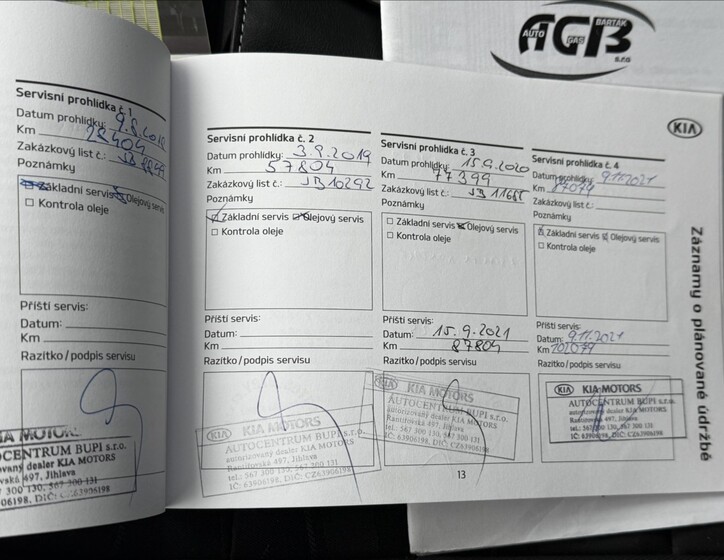 BARTÁK
AUTO AGB
GAS
s.r.o
KIA
Záznamy o plánované údržbě
Servisní prohlídka č. 1
Datum prohlídky: 9.8.2018
Km 28404
Zakázkový list č.:
Poznámky
Základní servis Olejový servis
☐ Kontrola oleje
Příští servis:
Datum:
Km
Razítko/podpis servisu
KIA MOTORS
AUTOCENTRUM BUPI s.r.o.
dealer KIA MOTORS
497, Jihlava
300 130, 567 300 131
DIČ: CZ63906198
Servisní prohlídka č. 2
Datum prohlídky: 3.9.2019
Km 57804
Zakázkový list č.: JB10292
Poznámky
☑ Základní servis ☒ Olejový servis
☐ Kontrola oleje
Příští servis:
Datum:
Km
Razítko/podpis servisu
KIA MOTORS
AUTOCENTRUM BUPI s.r.o.
autorizovaný dealer KIA MOTORS
Rantířovská 497, Jihlava
tel.: 567 300 130, 567 300 131
IČ: 63906198, DIČ: CZ63906198
Servisní prohlídka č. 3
Datum prohlídky: 15.9.2020
Km 77399
Zakázkový list č.: JB11655
Poznámky
☐ Základní servis ☒ Olejový servis
☐ Kontrola oleje
Příští servis:
Datum: 15.9.2021
Km 87804
Razítko/podpis servisu
KIA MOTORS
AUTOCENTRUM BUPI s.r.o.
autorizovaný dealer KIA MOTORS
Rantířovská 497, Jihlava
tel.: 567 300 130, 567 300 131
IČ: 63906198, DIČ: CZ63906198
Servisní prohlídka č. 4
Datum prohlídky: 9.11.2021
Km 87079
Zakázkový list č.:
Poznámky
☒ Základní servis ☒ Olejový servis
☐ Kontrola oleje
Příští servis:
Datum: 9.11.2021
Km 102079
Razítko/podpis servisu
KIA KIA MOTORS
AUTOCENTRUM BUPI s.r.o.
autorizovaný dealer KIA MOTORS
Rantířovská 497, Jihlava
tel.: 567 300 130, 567 300 131
IČ: 63906198, DIČ: CZ63906198
13